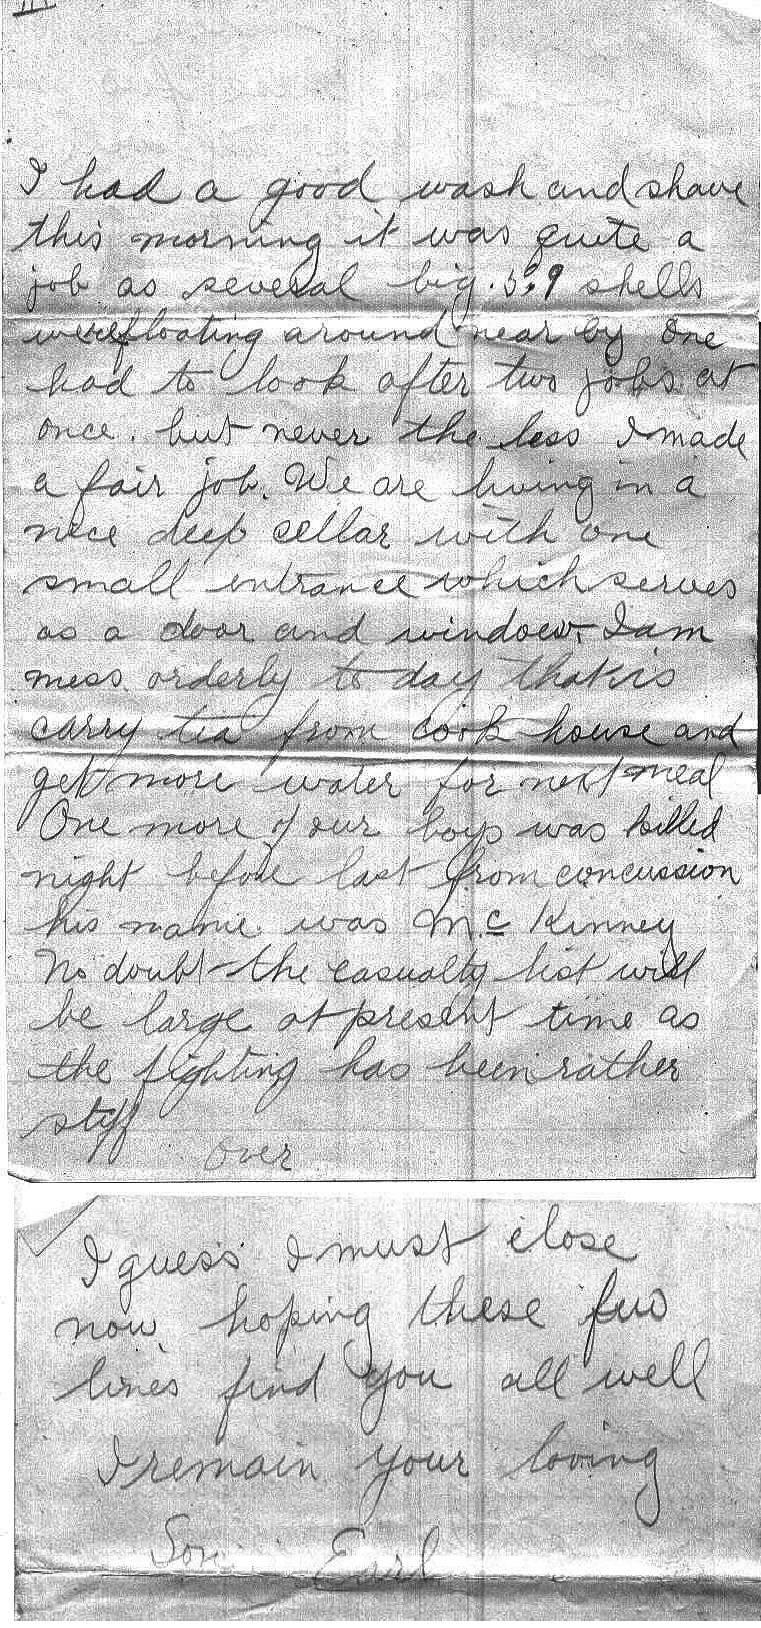 III
I had a good wash and shave
this morning it was quite a
job as several big. 5.9 shells
were floating around near by one
had to look after two jobs at
once. but never the less I made
a fair job. We are living in a
nice deep cellar with one
small entrance which serves
as a door and window. I am
mess orderly to day that is
carry tea from cook house and
get more water for next meal
One more of our boys was killed
night before last from concussion
his name was McKinney
No doubt the casualty list will
be large at present time as
the fighting has been rather
stiff
over
I guess I must close
now hoping these few
lines find you all well
I remain your loving
Son Earl